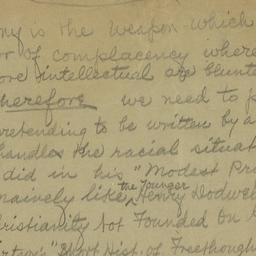 ny is the weapon which
or of complacency where
ore intellectual are blunte
therefore we need to p
retending to be written by a
handles the racial situat
did in his "Modest Pro
naively like the younger Henry Dodwel
hristianity Not Founded on
"Short Hist. of Freethough